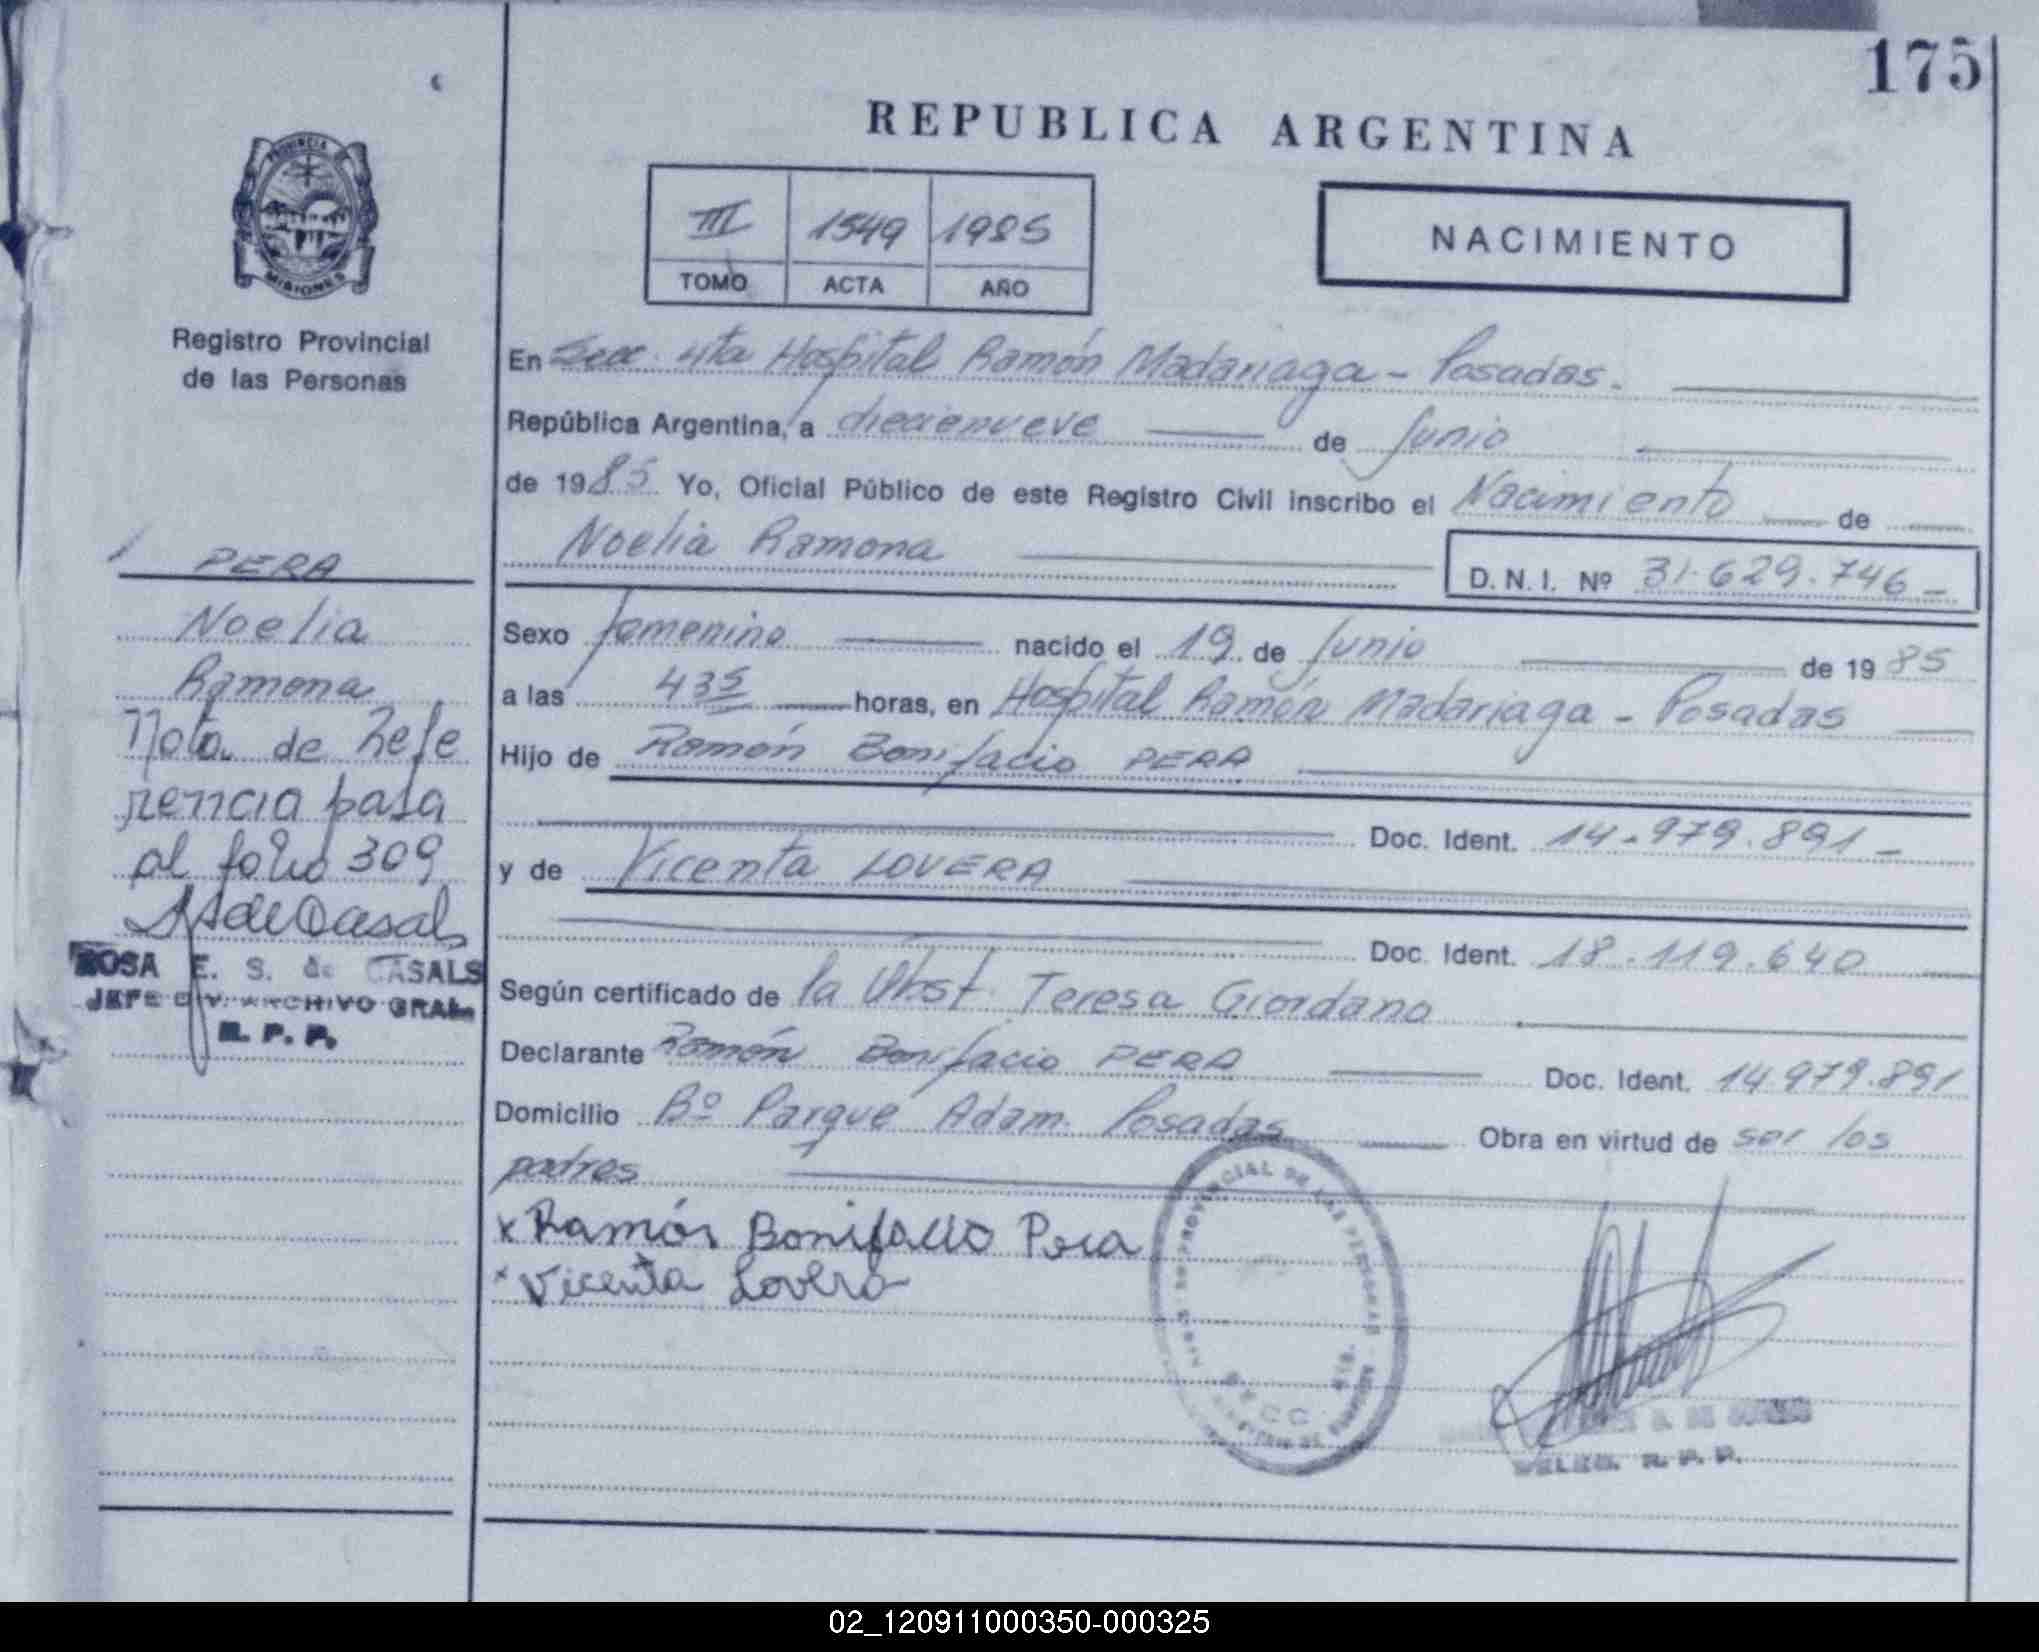 175
REPUBLICA ARGENTINA
PROVINCIA DE
MISIONES
III 1549 1985
TOMO ACTA AÑO
NACIMIENTO
Registro Provincial
de las Personas
En Secc. 4ta Hospital Ramón Madariaga - Posadas.
República Argentina, a diecienueve de Junio
de 1985 Yo, Oficial Público de este Registro Civil inscribo el Nacimiento de
Noelia Ramona
D. N. I. Nº 31.629.746-
Sexo femenino nacido el 19 de Junio de 1985
a las 4 35 horas, en Hospital Ramón Madariaga - Posadas
Hijo de Ramón Bonifacio PERA
Doc. Ident. 14-979.891-
y de Vicenta LOVERA
Doc. Ident. 18.119.640
Según certificado de la Obst. Teresa Giordano
Declarante Ramón Bonifacio PERA Doc. Ident. 14.979.891
Domicilio Bº Parque Adam. Posadas Obra en virtud de ser los
padres
x Ramón Bonifacio Pera
x Vicenta Lovera
PERA
Noelia
Ramona
Nota de Refe
rencia pasa
al folio 309
ROSA E. S. de CASALS
JEFE DIV. ARCHIVO GRAL.
R. P. P.
PROVINCIAL DE LAS PERSONAS
R. P. P.
02_120911000350-000325